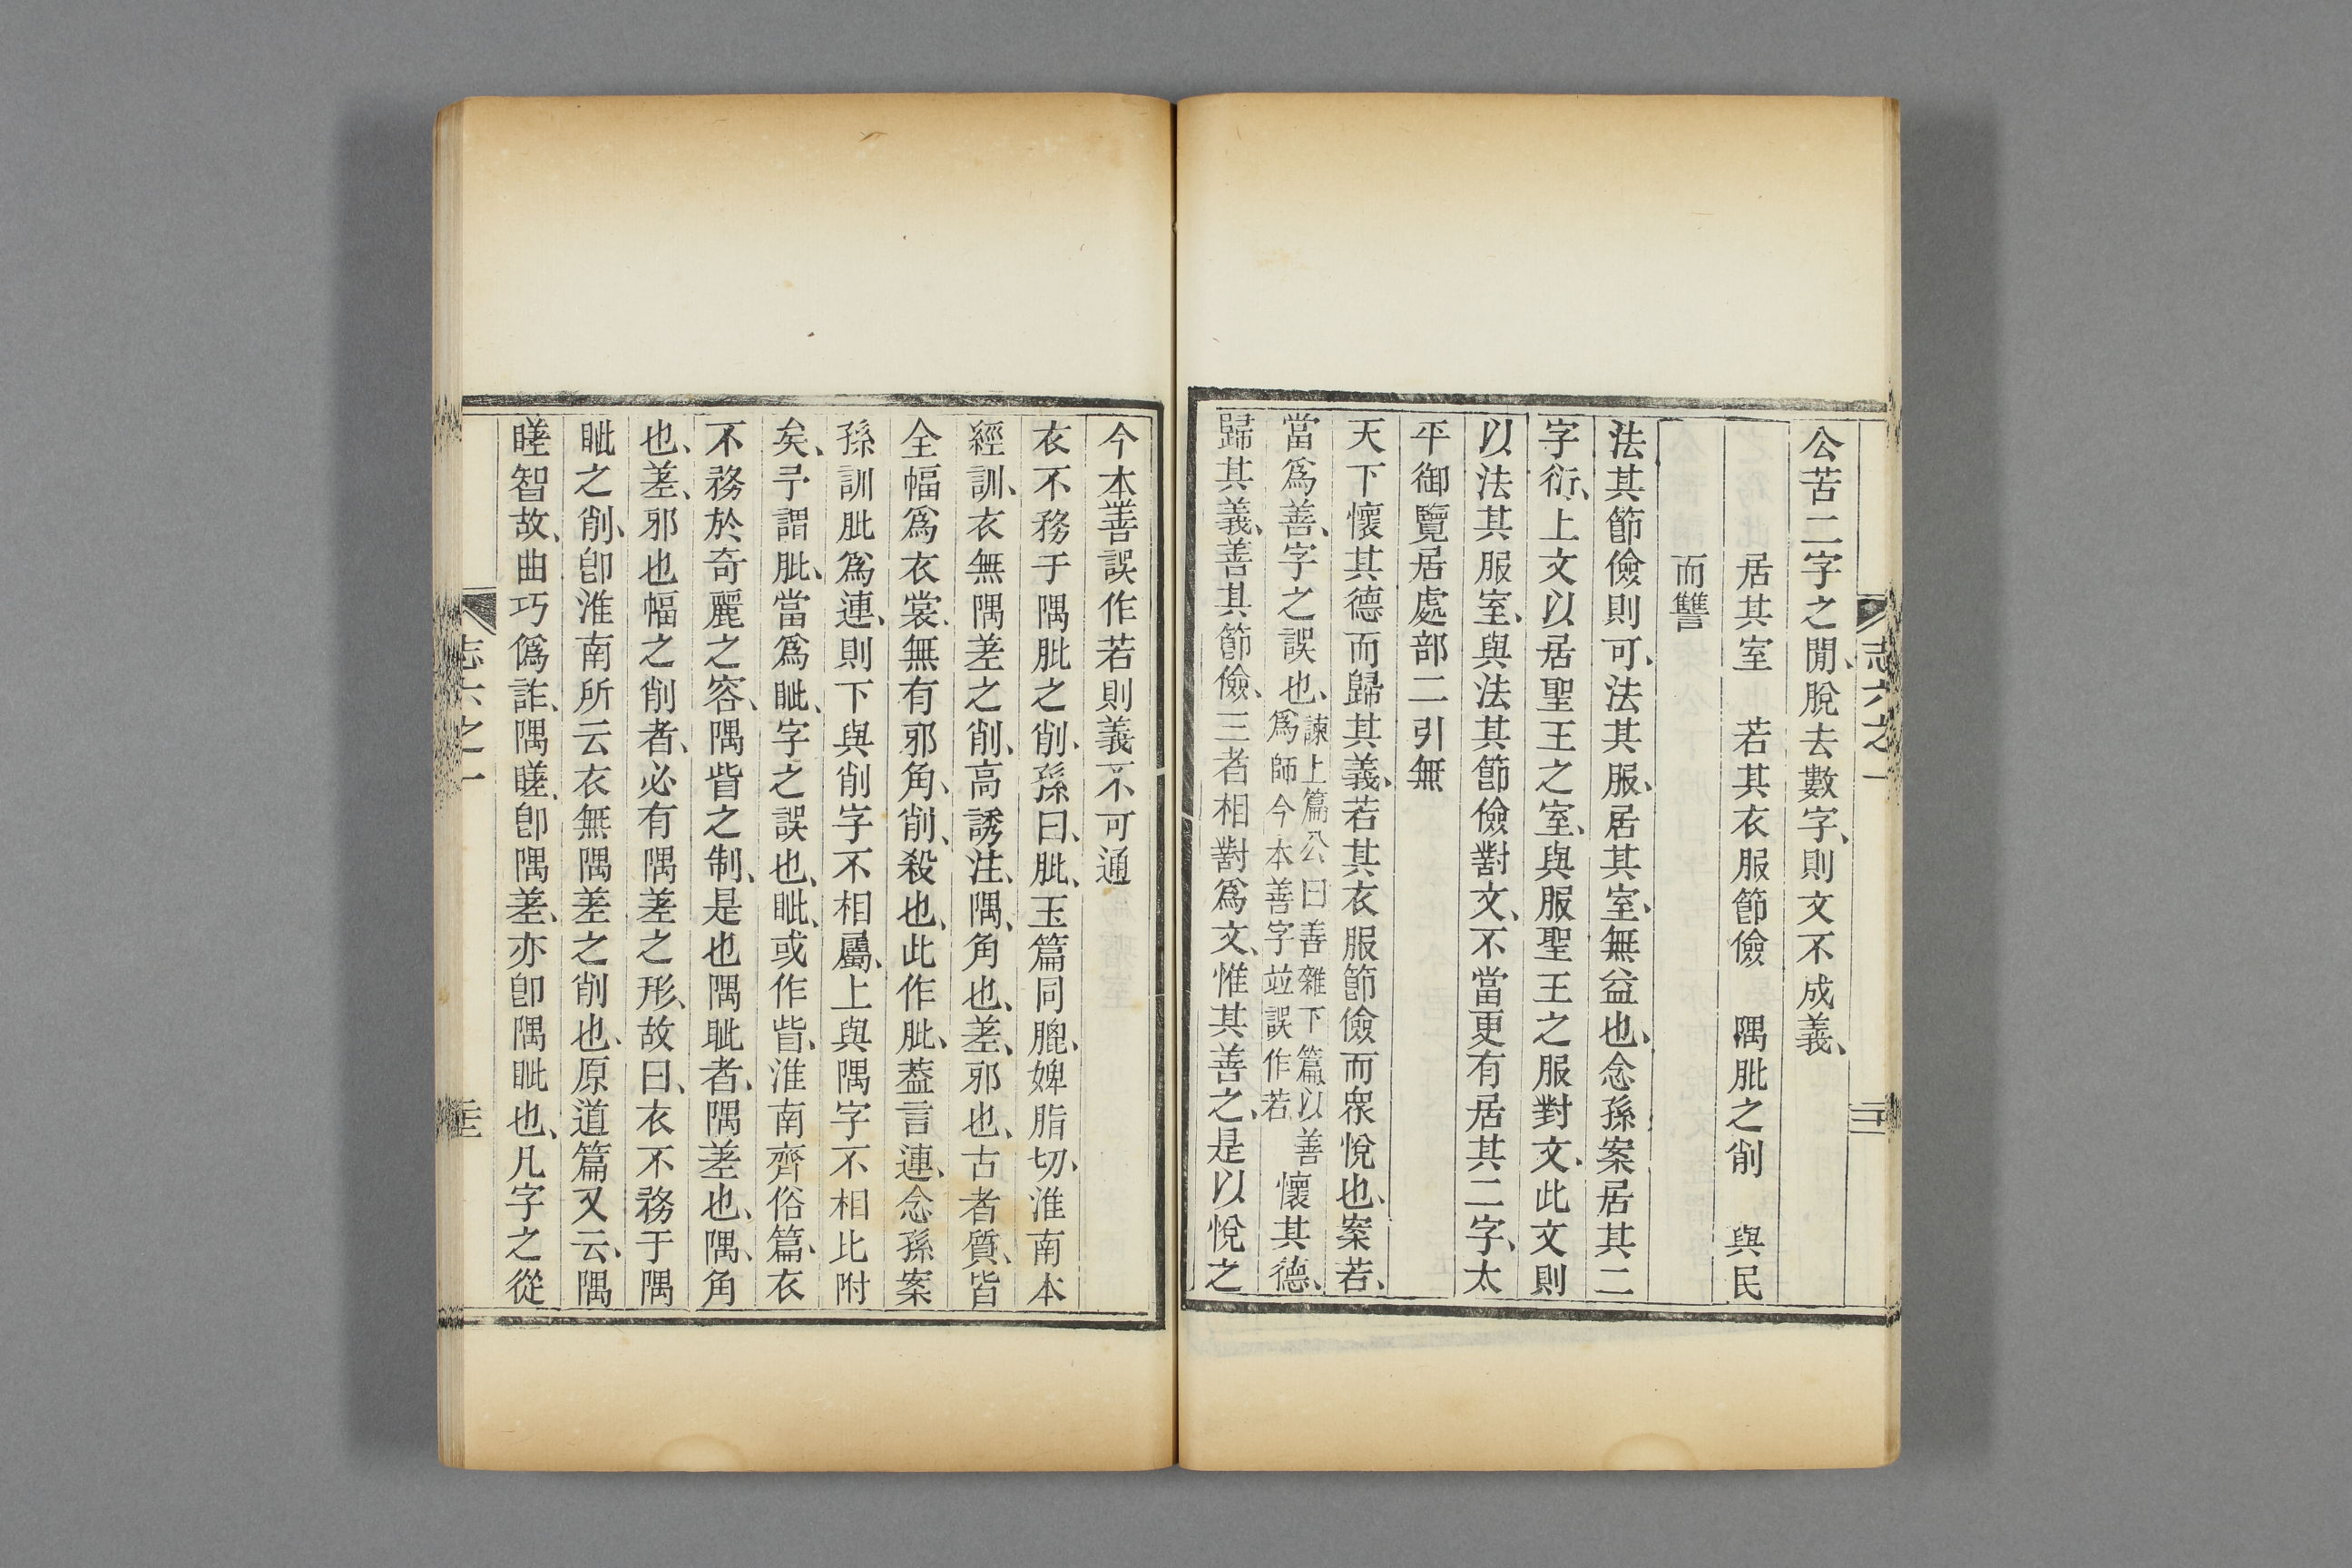 志六之一
公苦二字之閒、脫去數字、則文不成義、
居其室　若其衣服節儉　隅肶之削　與民
而讐
法其節儉則可、法其服、居其室、無益也、念孫案居其二
字衍、上文以居聖王之室、與服聖王之服對文、此文則
以法其服室、與法其節儉對文、不當更有居其二字、太
平御覽居處部二引無
天下懷其德而歸其義、若其衣服節儉而衆悅也、案若、
當爲善、字之誤也、諫上篇公曰善雜下篇以善爲師今本善字並誤作若懷其德、
歸其義、善其節儉、三者相對爲文、惟其善之、是以悅之
今本善誤作若則義不可通
衣不務于隅肶之削、孫曰、肶、玉篇同膍、婢脂切、淮南本
經訓、衣無隅差之削、高誘注、隅、角也、差、邪也、古者質、皆
全幅爲衣裳、無有邪角、削、殺也、此作肶、葢言連、念孫案
孫訓肶爲連、則下與削字不相屬、上與隅字不相比附
矣、予謂肶、當爲眦、字之誤也、眦、或作眥、淮南齊俗篇、衣
不務於奇麗之容、隅眥之制、是也隅眦者、隅差也、隅、角
也、差、邪也幅之削者、必有隅差之形、故曰、衣不務于隅
眦之削、卽淮南所云衣無隅差之削也、原道篇又云、隅
䁟智故、曲巧僞詐、隅䁟、卽隅差、亦卽隅眦也、凡字之從
志六之一